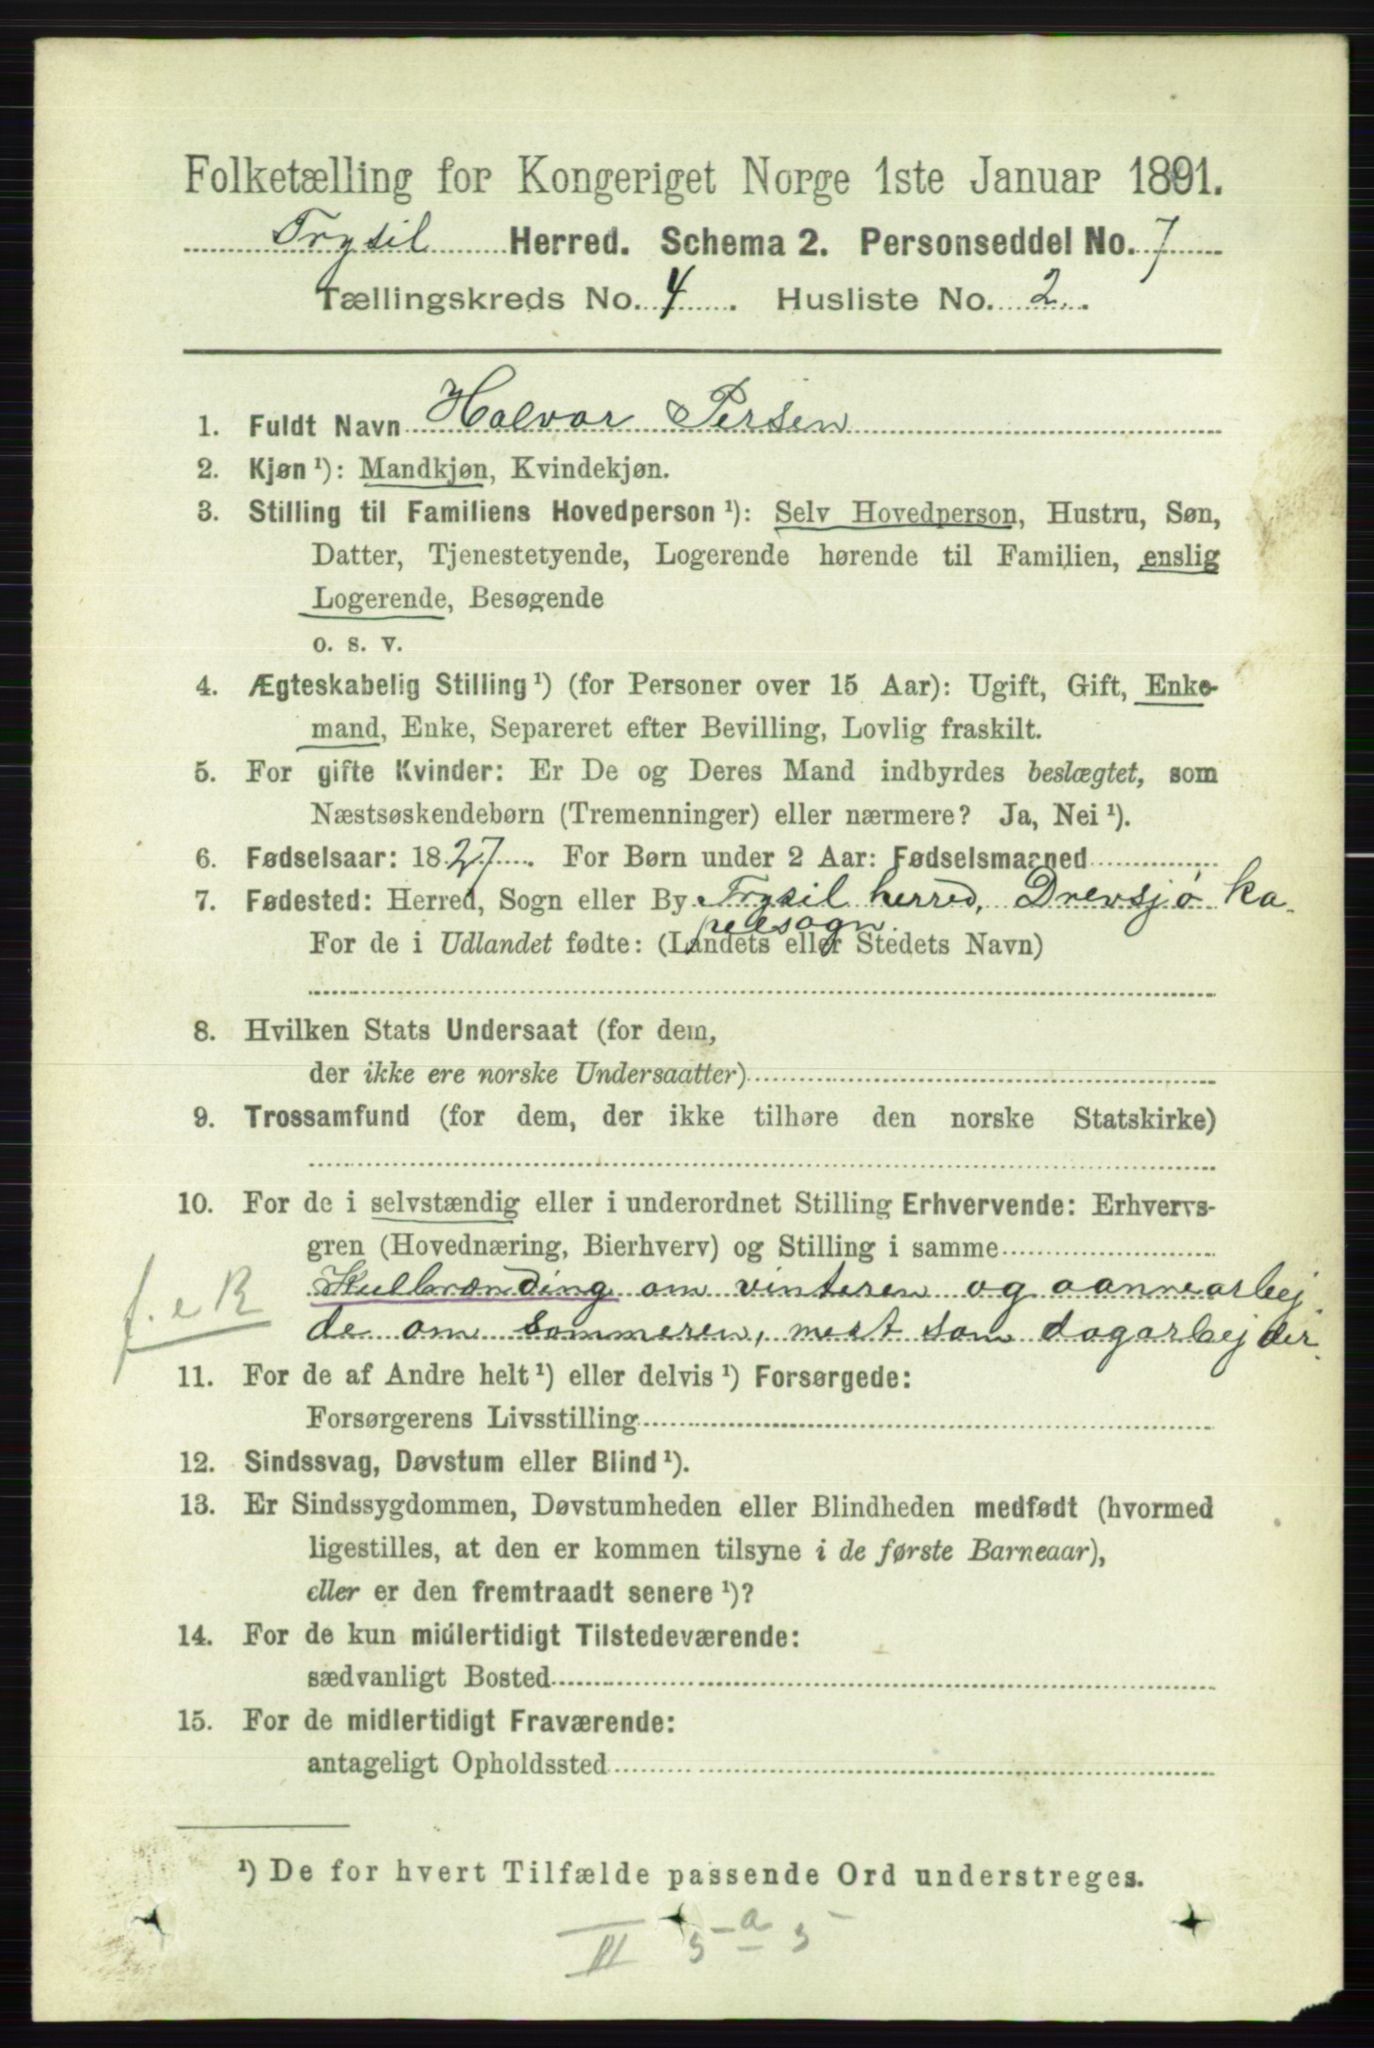 Folketælling for Kongeriget Norge 1ste Januar 1891.
Trysil Herred. Schema 2. Personseddel No. 7
Tællingskreds No. 4. Husliste No. 2.
1. Fuldt Navn Halvor Persen
2. Kjøn ¹): Mandkjøn, Kvindekjøn.
3. Stilling til Familiens Hovedperson ¹): Selv Hovedperson, Hustru, Søn,
Datter, Tjenestetyende, Logerende hørende til Familien, enslig
Logerende, Besøgende
o. s. v.
4. Ægteskabelig Stilling ¹) (for Personer over 15 Aar): Ugift, Gift, Enke-
mand, Enke, Separeret efter Bevilling, Lovlig fraskilt.
5. For gifte Kvinder: Er De og Deres Mand indbyrdes beslægtet, som
Næstsøskendebørn (Tremenninger) eller nærmere? Ja, Nei ¹).
6. Fødselsaar: 1827. For Børn under 2 Aar: Fødselsmaaned
7. Fødested: Herred, Sogn eller By Trysil herred, Drevsjø ka
pelsogn.
For de i Udlandet fødte: (Landets eller Stedets Navn)
8. Hvilken Stats Undersaat (for dem,
der ikke ere norske Undersaatter)
9. Trossamfund (for dem, der ikke tilhøre den norske Statskirke)
10. For de i selvstændig eller i underordnet Stilling Erhvervende: Erhvervs-
gren (Hovednæring, Bierhverv) og Stilling i samme
Kulbrænding om vinteren og aannearbej
f. e R
de om sommeren, mest som dagarbejder.
11. For de af Andre helt ¹) eller delvis ¹) Forsørgede:
Forsørgerens Livsstilling
12. Sindssvag, Døvstum eller Blind ¹).
13. Er Sindssygdommen, Døvstumheden eller Blindheden medfødt (hvormed
ligestilles, at den er kommen tilsyne i de første Barneaar),
eller er den fremtraadt senere ¹)?
14. For de kun midlertidigt Tilstedeværende:
sædvanligt Bosted
15. For de midlertidigt Fraværende:
antageligt Opholdssted
¹) De for hvert Tilfælde passende Ord understreges.
II 5-a 5